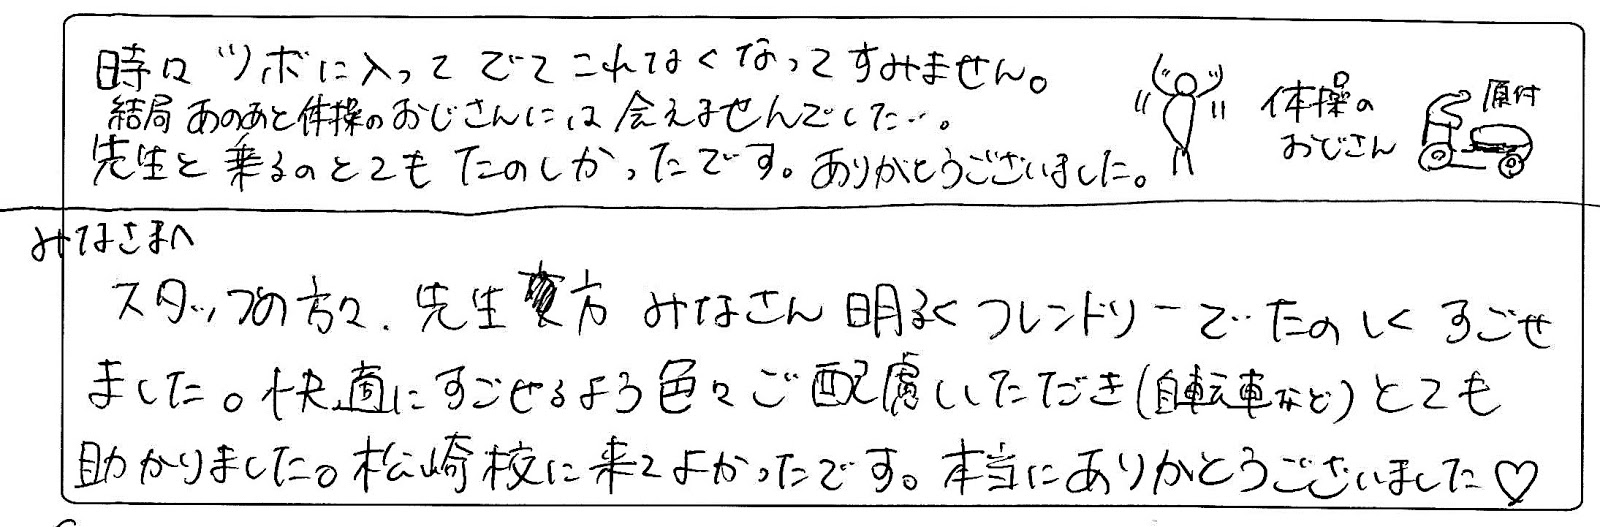 時々ツボに入ってでてこれなくなってすみません。
結局あのあと体操のおじさんには会えませんでした…。
先生と乗るのとてもたのしかったです。ありがとうございました。
体操の
おじさん
原付
みなさまへ
スタッフの方々、先生方みなさん明るくフレンドリーでたのしくすごせ
ました。快適にすごせるよう色々ご配慮いただき(自転車など)とても
助かりました。松崎校に来てよかったです。本当にありがとうございました♡